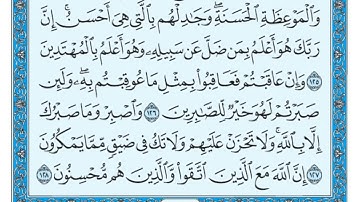 وَالْمَوْعِظَةِ الْحَسَنَةِ ۖ وَجَٰدِلْهُم بِالَّتِي هِيَ أَحْسَنُ ۚ إِنَّ
رَبَّكَ هُوَ أَعْلَمُ بِمَن ضَلَّ عَن سَبِيلِهِۦ وَهُوَ أَعْلَمُ بِالْمُهْتَدِينَ
١٢٥ وَإِنْ عَاقَبْتُمْ فَعَاقِبُوا۟ بِمِثْلِ مَا عُوقِبْتُم بِهِۦ ۖ وَلَئِن
صَبَرْتُمْ لَهُوَ خَيْرٌ لِّلصَّٰبِرِينَ ١٢٦ وَاصْبِرْ وَمَا صَبْرُكَ
إِلَّا بِاللَّهِ ۚ وَلَا تَحْزَنْ عَلَيْهِمْ وَلَا تَكُ فِي ضَيْقٍ مِّمَّا يَمْكُرُونَ
١٢٧ إِنَّ اللَّهَ مَعَ الَّذِينَ اتَّقَوا۟ وَّالَّذِينَ هُم مُّحْسِنُونَ ١٢٨